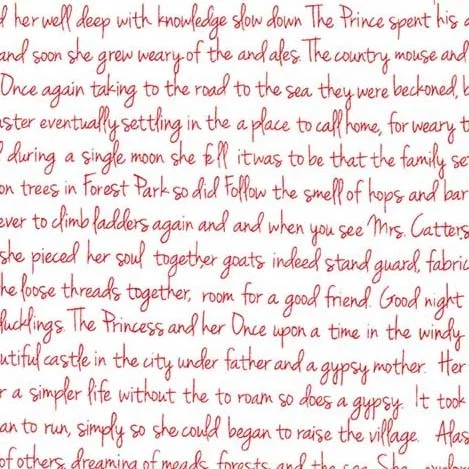 d her well deep with knowledge slow down The Prince spent his
and soon she grew weary of the and ales. The country mouse and
Once again taking to the road to the sea they were beckoned, b
aster eventually settling in the a place to call home, for weary t
during a single moon she fell it was to be that the family se
on trees in Forest Park so did Follow the smell of hops and bar
ever to climb ladders again and and when you see Mrs. Catters
she pieced her soul together goats indeed stand guard, fabric
he loose threads together, room for a good friend. Good night
ducklings. The Princess and her Once upon a time in the windy
utiful castle in the city under father and a gypsy mother. Her
r a simpler life without the to roam so does a gypsy. It took
an to run, simply so she could began to raise the village. Alas
of others, dreaming of meads, forests and the sea. She